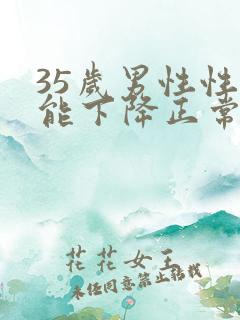 35歲男性性
能下降正常
花花女王
未经同意禁止转载